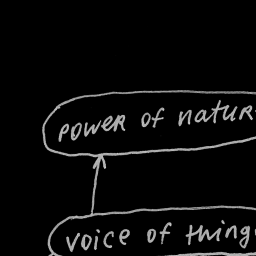 power of natur
voice of thing